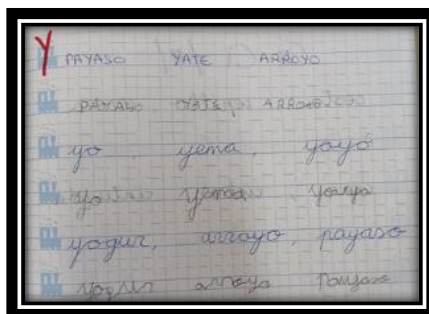 Y PAYASO YATE ARROYO
PAYASO YATE
yo, yema, yoyó
yo yema yoyo
yogur, arroyo, payaso
yogur arroyo Payaso